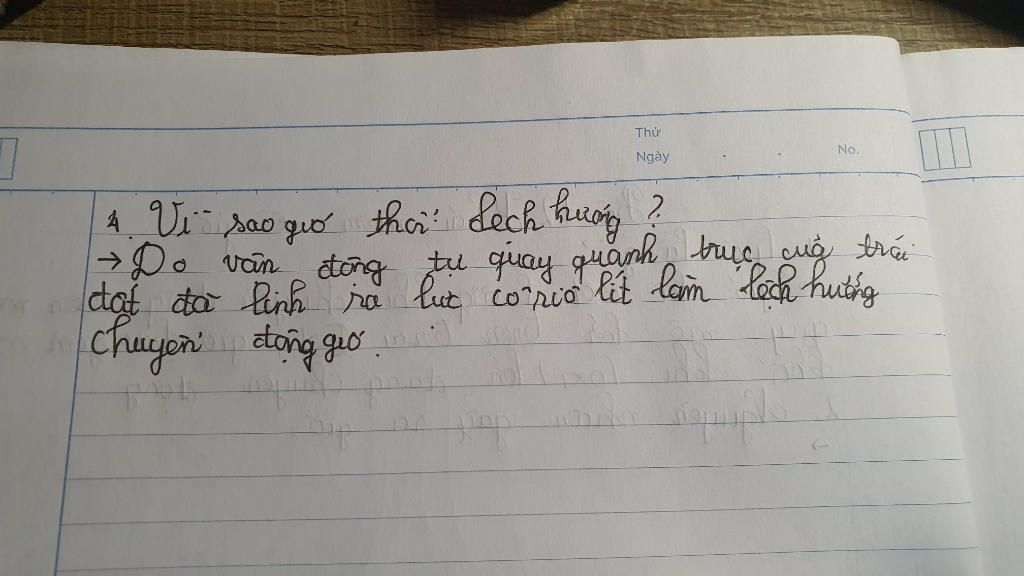 Thứ
Ngày . . No.
4. Vì sao gió thổi lệch hướng ?
→ Do vận động tự quay quanh trục của trái
đất đã sinh ra lực côriô lít làm lệch hướng
chuyển động gió.